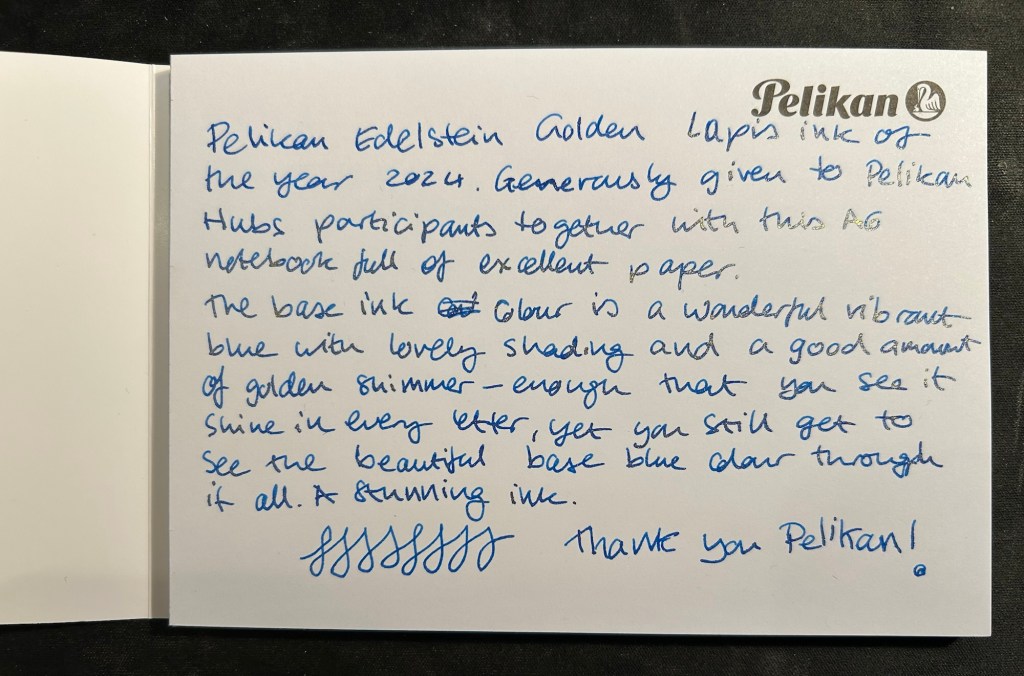 Pelikan
Pelikan Edelstein Golden Lapis ink of
the year 2024. Generously given to Pelikan
Hubs participants together with this A6
notebook full of excellent paper.
The base ink colour is a wonderful vibrant
blue with lovely shading and a good amount
of golden shimmer – enough that you see it
shine in every letter, yet you still get to
see the beautiful base blue colour through
it all. A stunning ink.
Thank you Pelikan!